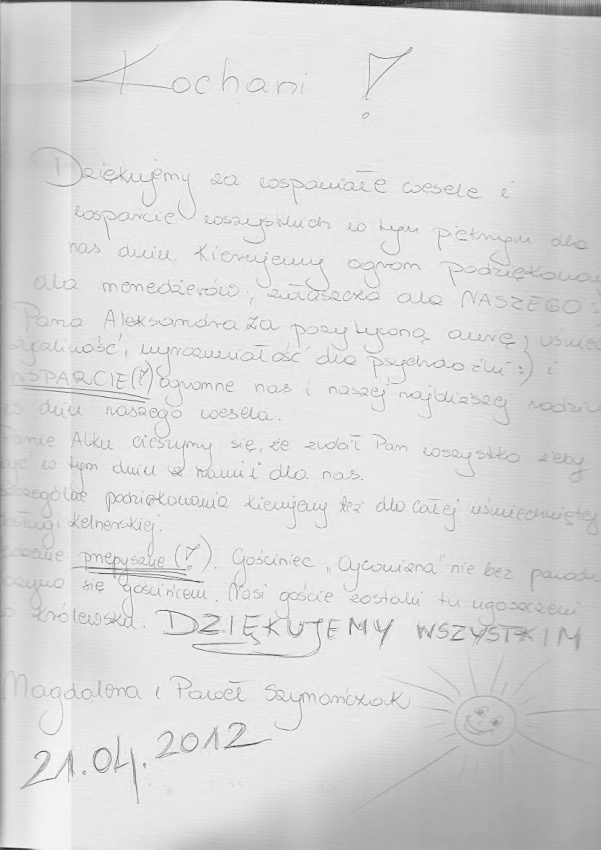 Kochani !
Dziękujemy za wspaniałe wesele i
wsparcie wszystkich w tym pięknym dla
nas dniu. Kierujemy ogrom podziękowań
dla menedżerów, zwłaszcza dla NASZEGO :
Pana Aleksandra za pozytywną aurę,
wyrozumiałość dla :) i
WSPARCIE(!) ogromne nas i naszej najbliższej rodziny
w dniu naszego wesela.
Panie Alku cieszymy się, że zrobił Pan wszystko żeby
być w tym dniu z nami i dla nas.
szczególne podziękowania kierujemy też dla całej uśmiechniętej
obsługi kelnerskiej.
Jedzenie przepyszne (!). Gościniec „Ojcowizna" nie bez powodu
się gościńcem. Nasi goście zostali tu ugoszczeni
królewsku. DZIĘKUJEMY WSZYSTKIM
Magdalena i Paweł Szymończak
21.04.2012